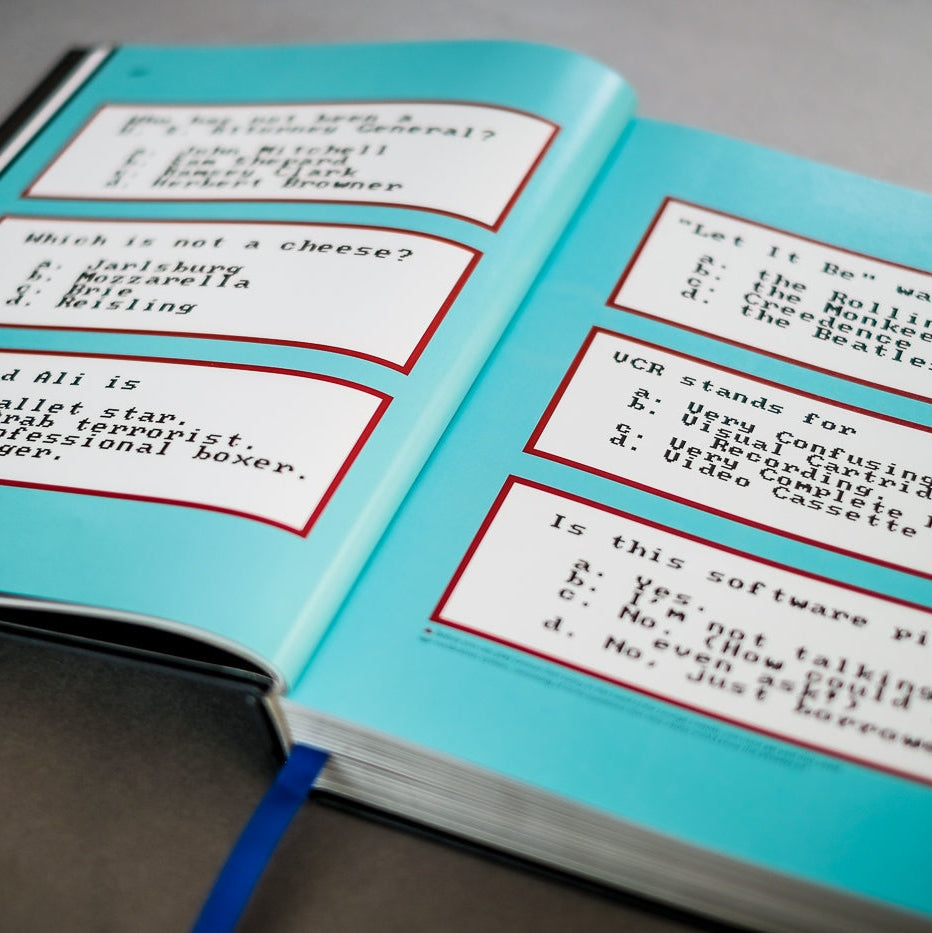 Who has not been a
U. S. Attorney General?
a. John Mitchell
b. Sam Shepard
c. Ramsey Clark
d. Herbert Browner
Which is not a cheese?
a. Jarlsburg
b. Mozzarella
c. Brie
d. Reisling
d Ali is
allet star.
rab terrorist.
ofessional boxer.
ger.
"Let It Be" wa
a. the Rollin
b. the Monkee
c. Creedence
d. the Beatle
VCR stands for
a. Very Confusing
b. Visual Cartrid
Recording.
c. Very Complete
d. Video Cassette
Is this software pi
a. Yes.
b. I'm not talking
c. No. (How could
even ask?)
d. No, just borrowe